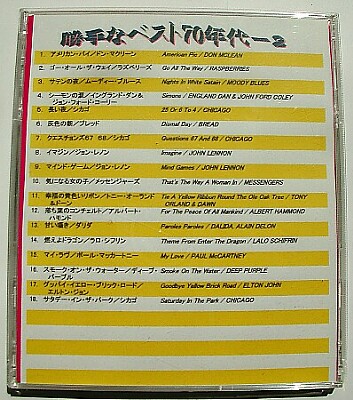 勝手なベスト70年代ー2
1. アメリカン・パイ/ドン・マクリーン American Pie / DON MCLEAN
2. ゴー・オール・ザ・ウェイ/ラズベリーズ Go All The Way / RASPBERRIES
3. サテンの夜/ムーディー・ブルース Nights In White Satain / MOODY BLUES
4. シモーンの愛/イングランド・ダン& Simons / ENGLAND DAN & JOHN FORD COLEY
ジョン・フォード・コーリー
5. 長い夜/シカゴ 25 Or 6 To 4 / CHICAGO
6. 灰色の朝/ブレッド Dismal Day / BREAD
7. クエスチョンズ67 68/シカゴ Questions 67 And 68 / CHICAGO
8. イマジン/ジョン・レノン Imagine / JOHN LENNON
9. マインド・ゲーム/ジョン・レノン Mind Games / JOHN LENNON
10. 気になる女の子/メッセンジャーズ That's The Way A Woman In / MESSENGERS
11. 幸福の黄色いリボン/トニー・オーランド Tie A Yellow Ribbon Round The Ole Oak Tree / TONY
&ドーン ORLAND & DAWN
12. 落ち葉のコンチェルト/アルバート・ For The Peace Of All Mankind / ALBERT HAMMOND
ハモンド
13. 甘い囁き/ダリダ Paroles Paroles / DALIDA, ALAIN DELON
14. 燃えよドラゴン/ラロ・シフリン Theme From Enter The Dragon / LALO SCHIFRIN
15. マイ・ラヴ/ポール・マッカートニー My Love / PAUL McCARTNEY
16. スモーク・オン・ザ・ウォーター/ディープ・ Smoke On The Water / DEEP PURPLE
パープル
17. グッバイ・イエロー・ブリック・ロード/ Goodbye Yellow Brick Road / ELTON JOHN
エルトン・ジョン
18. サタデー・イン・ザ・パーク/シカゴ Saturday In The Park / CHICAGO